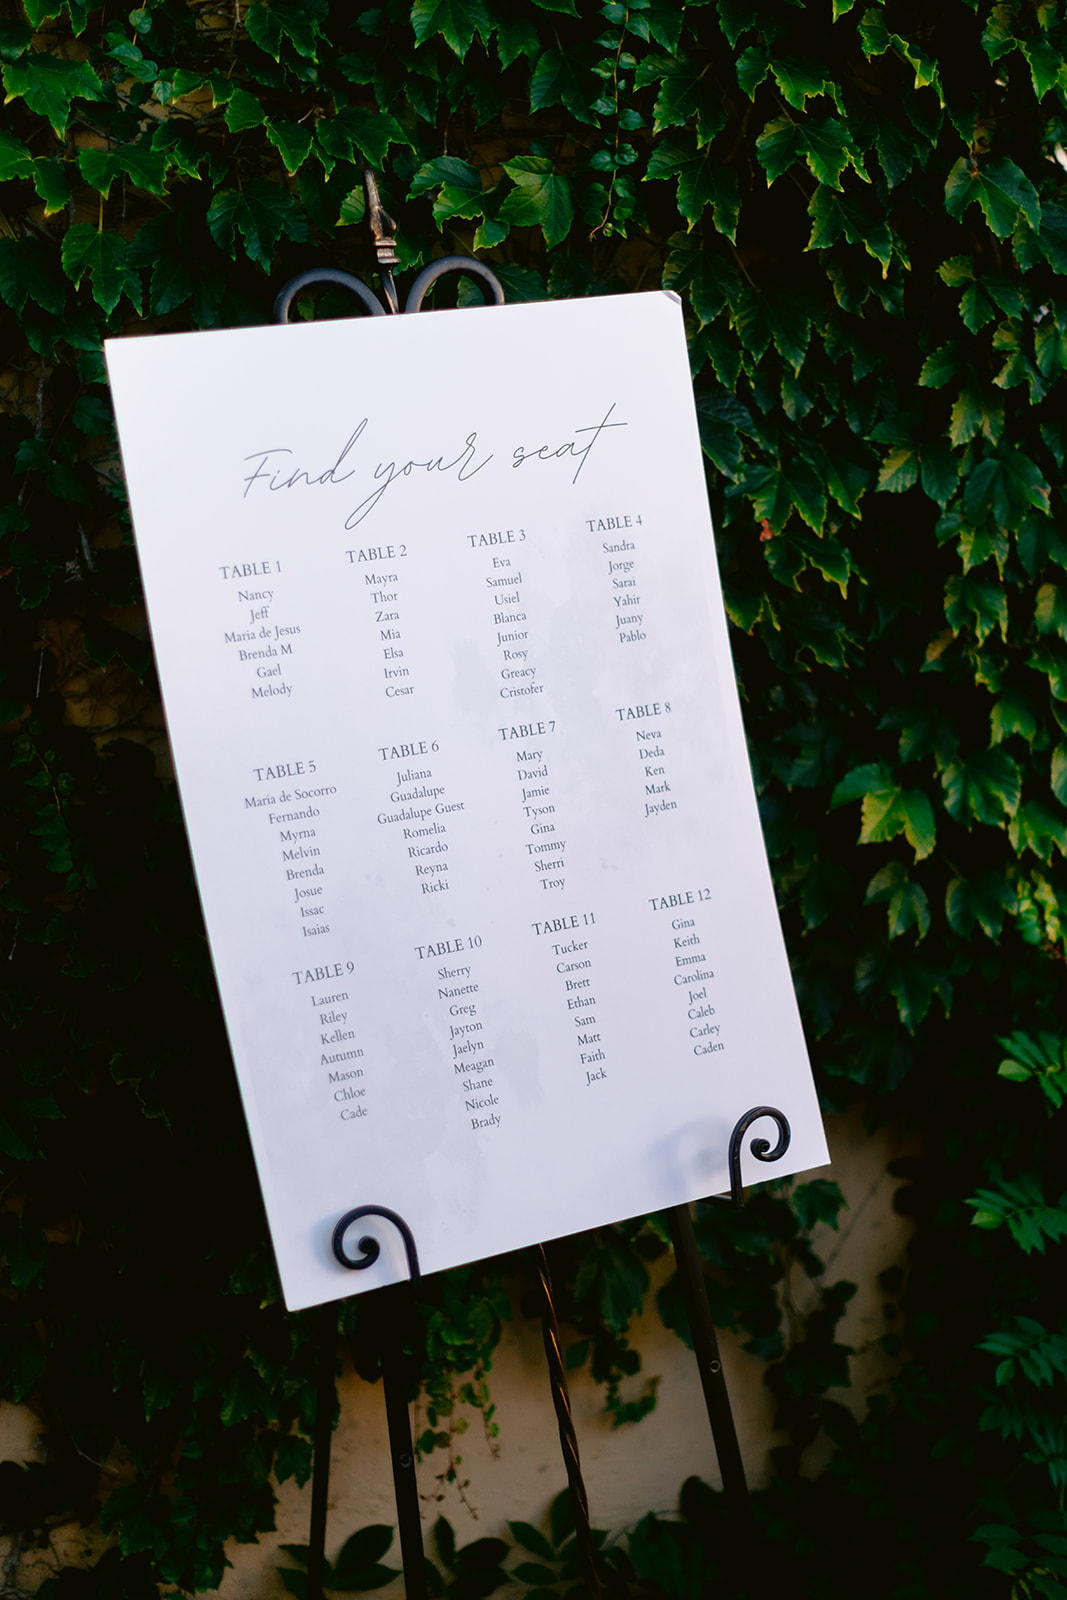 Find your seat
TABLE 1
Nancy
Jeff
Maria de Jesus
Brenda M
Gael
Melody
TABLE 2
Mayra
Thor
Zara
Mia
Elsa
Irvin
Cesar
TABLE 3
Eva
Samuel
Usiel
Blanca
Junior
Rosy
Greacy
Cristofer
TABLE 4
Sandra
Jorge
Sarai
Yahir
Juany
Pablo
TABLE 5
Maria de Socorro
Fernando
Myrna
Melvin
Brenda
Josue
Issac
Isaias
TABLE 6
Juliana
Guadalupe
Guadalupe Guest
Romelia
Ricardo
Reyna
Ricki
TABLE 7
Mary
David
Jamie
Tyson
Gina
Tommy
Sherri
Troy
TABLE 8
Neva
Deda
Ken
Mark
Jayden
TABLE 9
Lauren
Riley
Kellen
Autumn
Mason
Chloe
Cade
TABLE 10
Sherry
Nanette
Greg
Jayton
Jaelyn
Meagan
Shane
Nicole
Brady
TABLE 11
Tucker
Carson
Brett
Ethan
Sam
Matt
Faith
Jack
TABLE 12
Gina
Keith
Emma
Carolina
Joel
Caleb
Carley
Caden